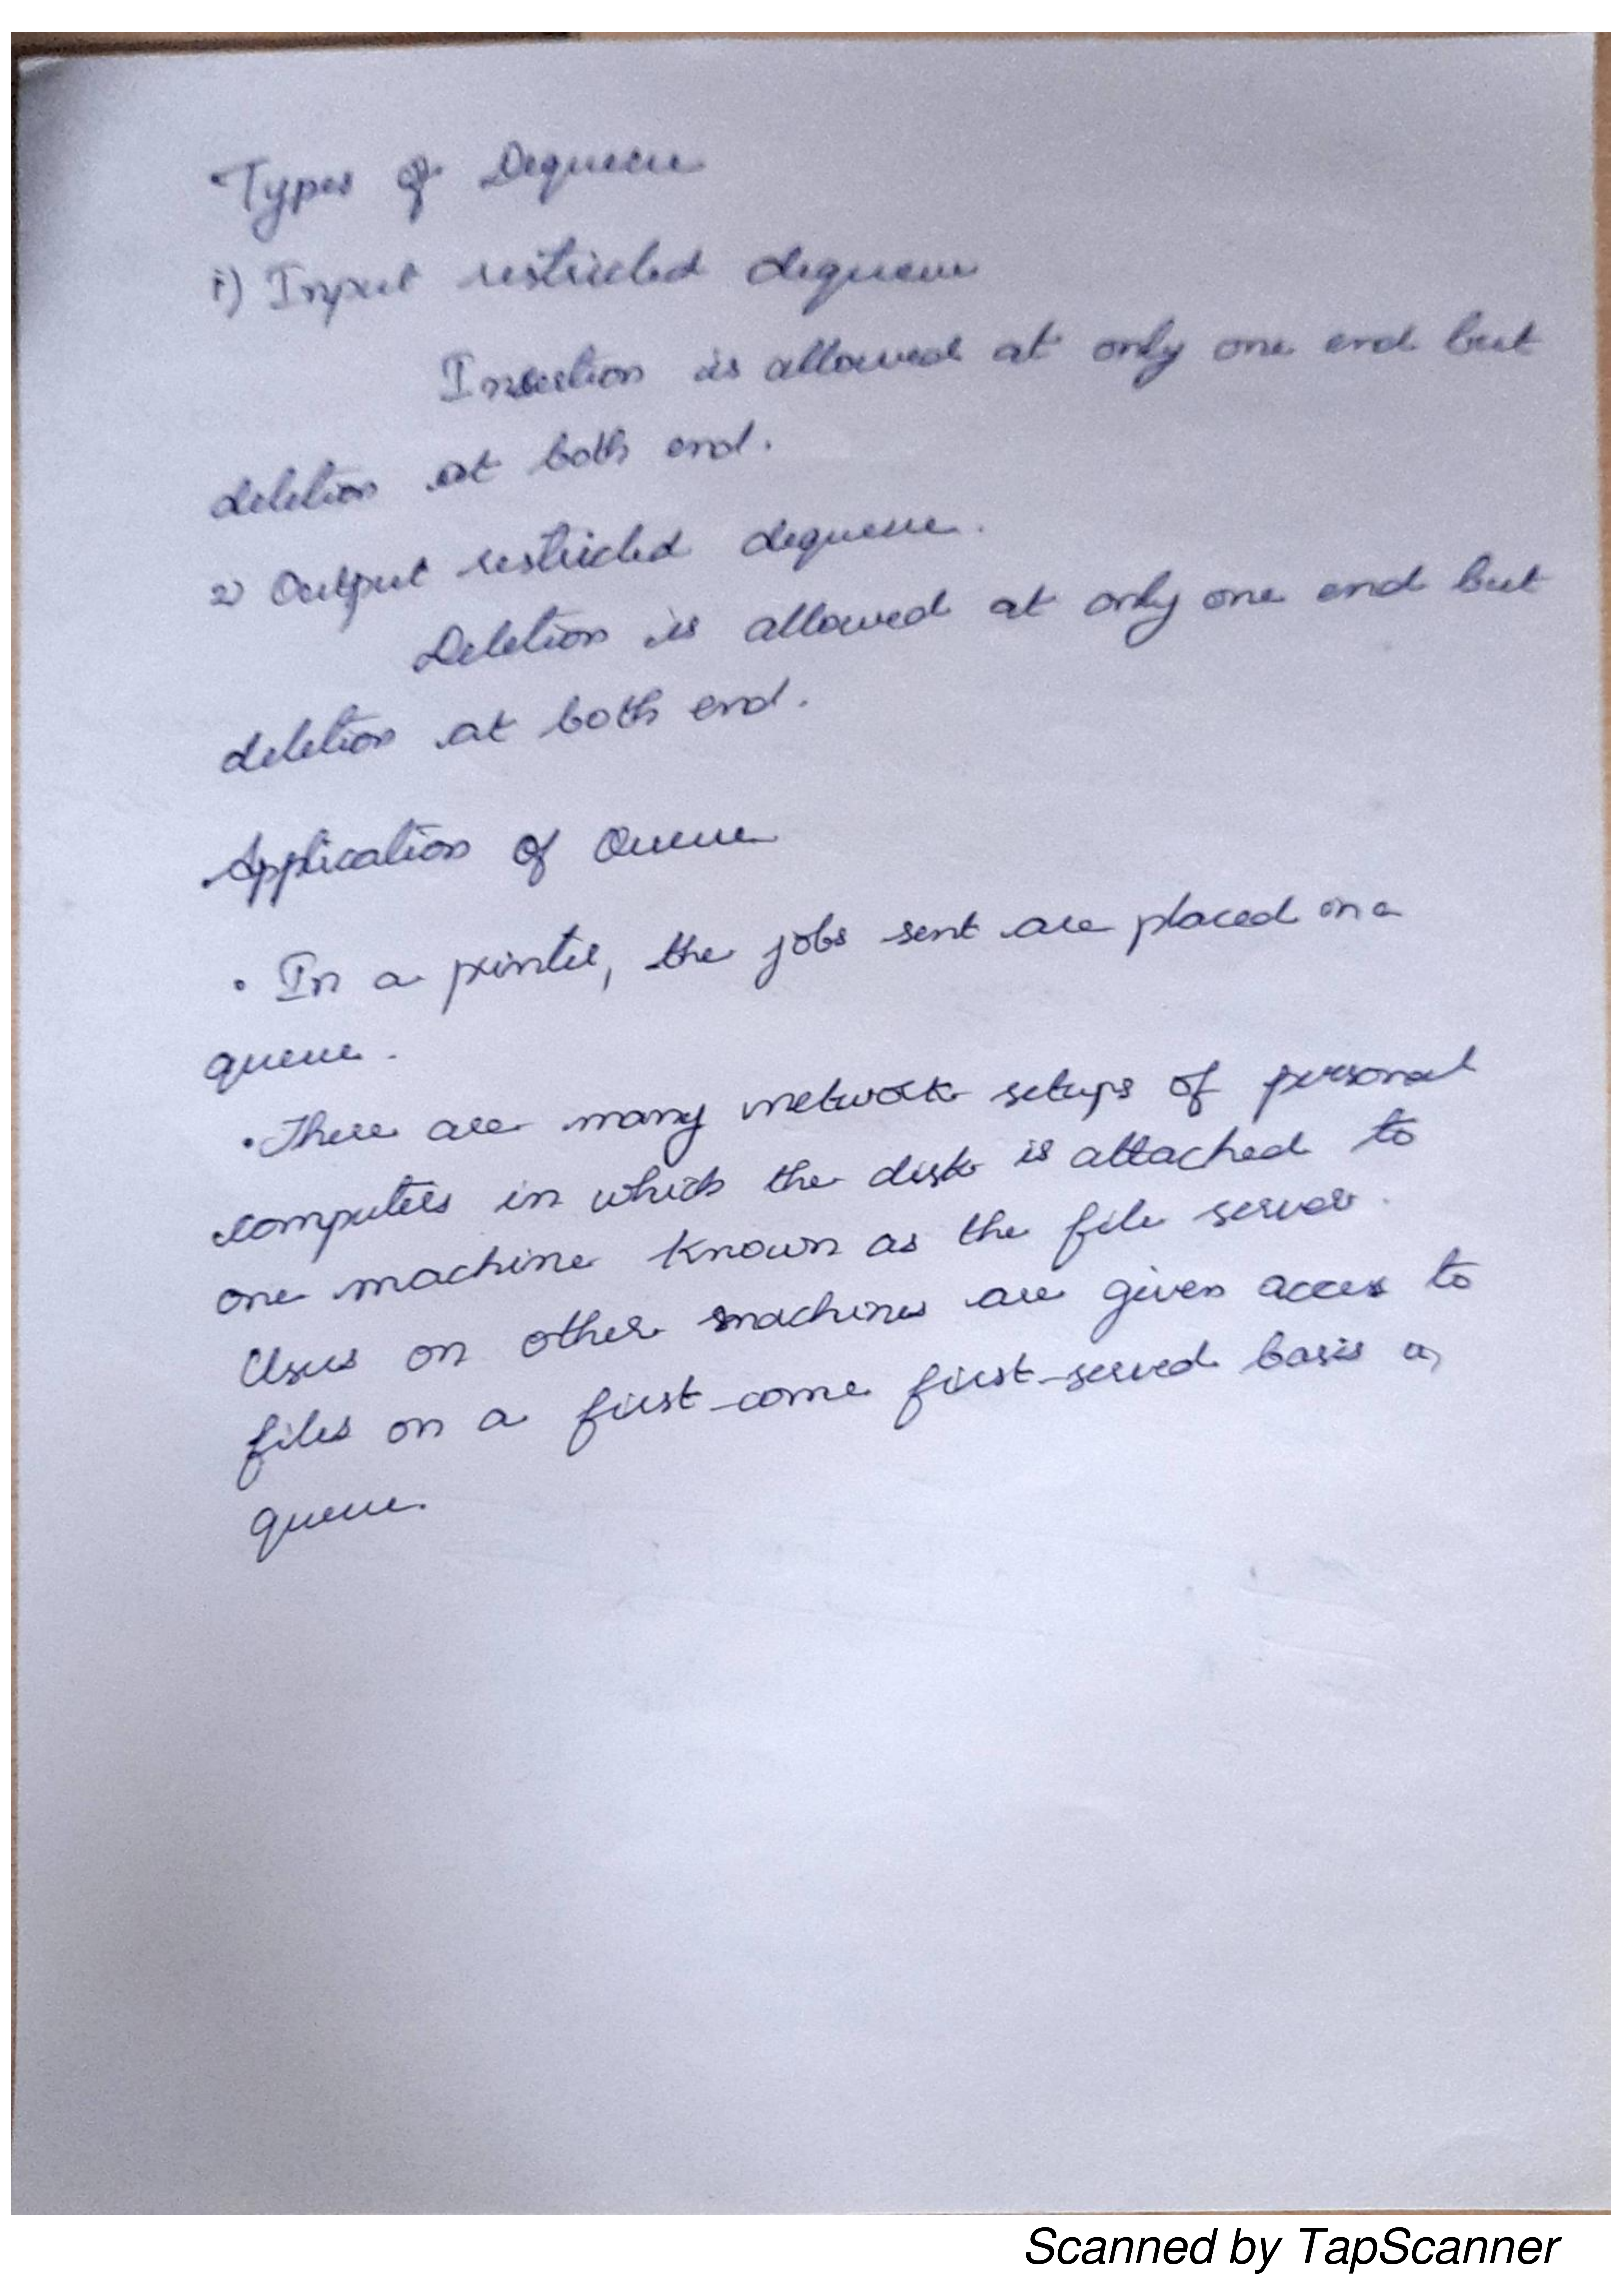 Types of Dequeue
i) Input restricted dequeue
Insertion is allowed at only one end but
deletion at both end.
2) Output restricted dequeue.
Deletion is allowed at only one end but
deletion at both end.
Application of Queue
• In a printer, the jobs sent are placed on a
queue.
• There are many network setups of personal
computers in which the disk is attached to
one machine known as the file server.
Users on other machines are given access to
files on a first-come first-served basis as
queue.
Scanned by TapScanner